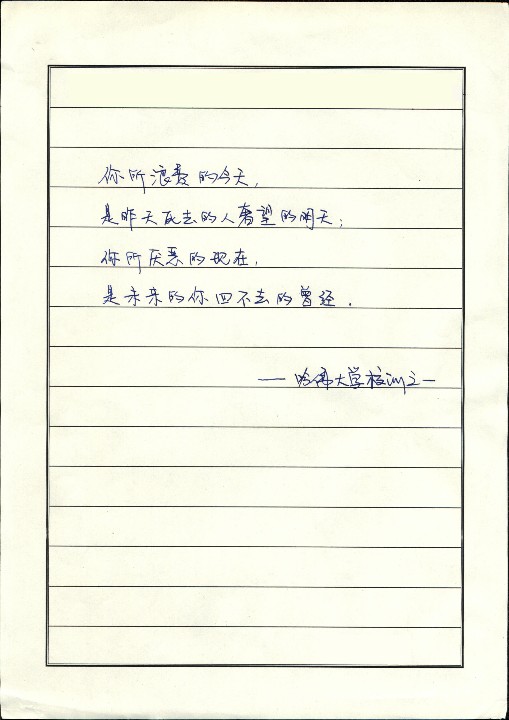 你所浪费的今天,
是昨天死去的人奢望的明天;
你所厌恶的现在,
是未来的你回不去的曾经.
——哈佛大学校训之一